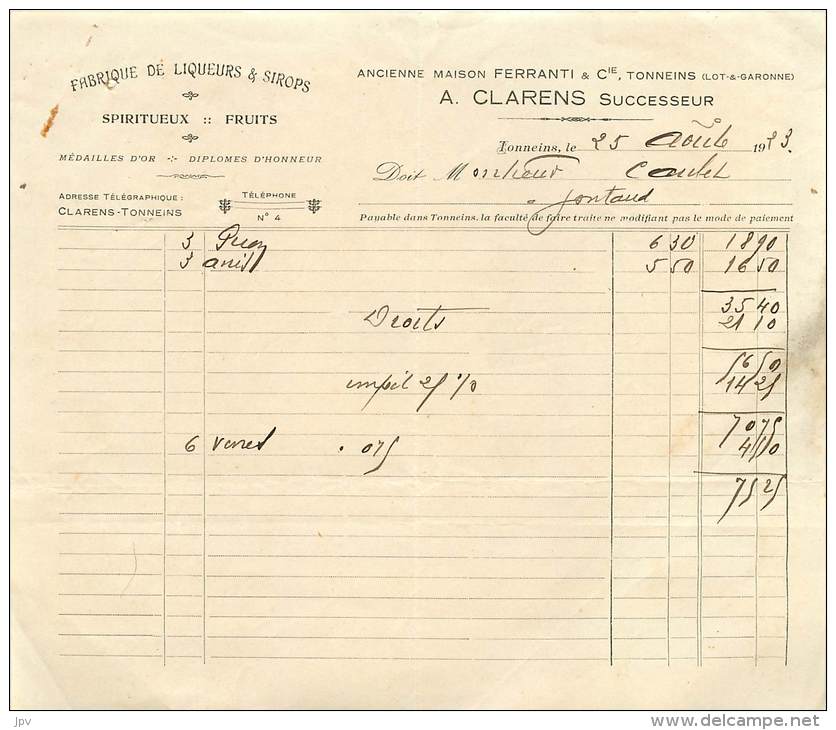 FABRIQUE DE LIQUEURS & SIROPS
SPIRITUEUX :: FRUITS
MÉDAILLES D'OR -:- DIPLOMES D'HONNEUR
ADRESSE TÉLÉGRAPHIQUE :
CLARENS-TONNEINS
TÉLÉPHONE
N° 4
ANCIENNE MAISON FERRANTI & CIE, TONNEINS (LOT-&-GARONNE)
A. CLARENS SUCCESSEUR
Tonneins, le 25 Août 1923.
Doit Monsieur
Payable dans Tonneins, la faculté de faire traite ne modifiant pas le mode de paiement
3 6 30 18 90
3 anis 5 50 16 50
35 40
Droits 21 10
56 50
25 % 14 25
70 75
6 verres . 075 4 50
75 25
jpv
www.delcampe.net